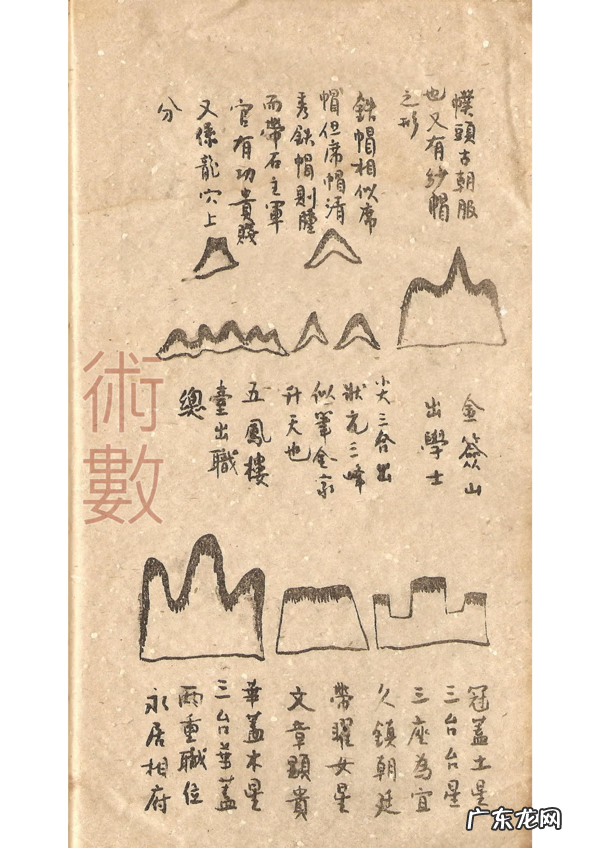 幞頭古朝服
也又有紗帽
之形
鉄帽相似席
帽但席帽清
秀鉄帽則腫
而帶石主軍
官有功貴賤
又係龍穴上
分
金簽山
出學士
尖三台出
狀元三峰
似筆全家
升天也
五鳳樓
臺出職
總
冠蓋土星
三台台星
三座為宜
久鎮朝廷
帶耀女星
文章顕貴
華蓋木星
三台華蓋
兩重職位
永居相府
術數
广东龙网